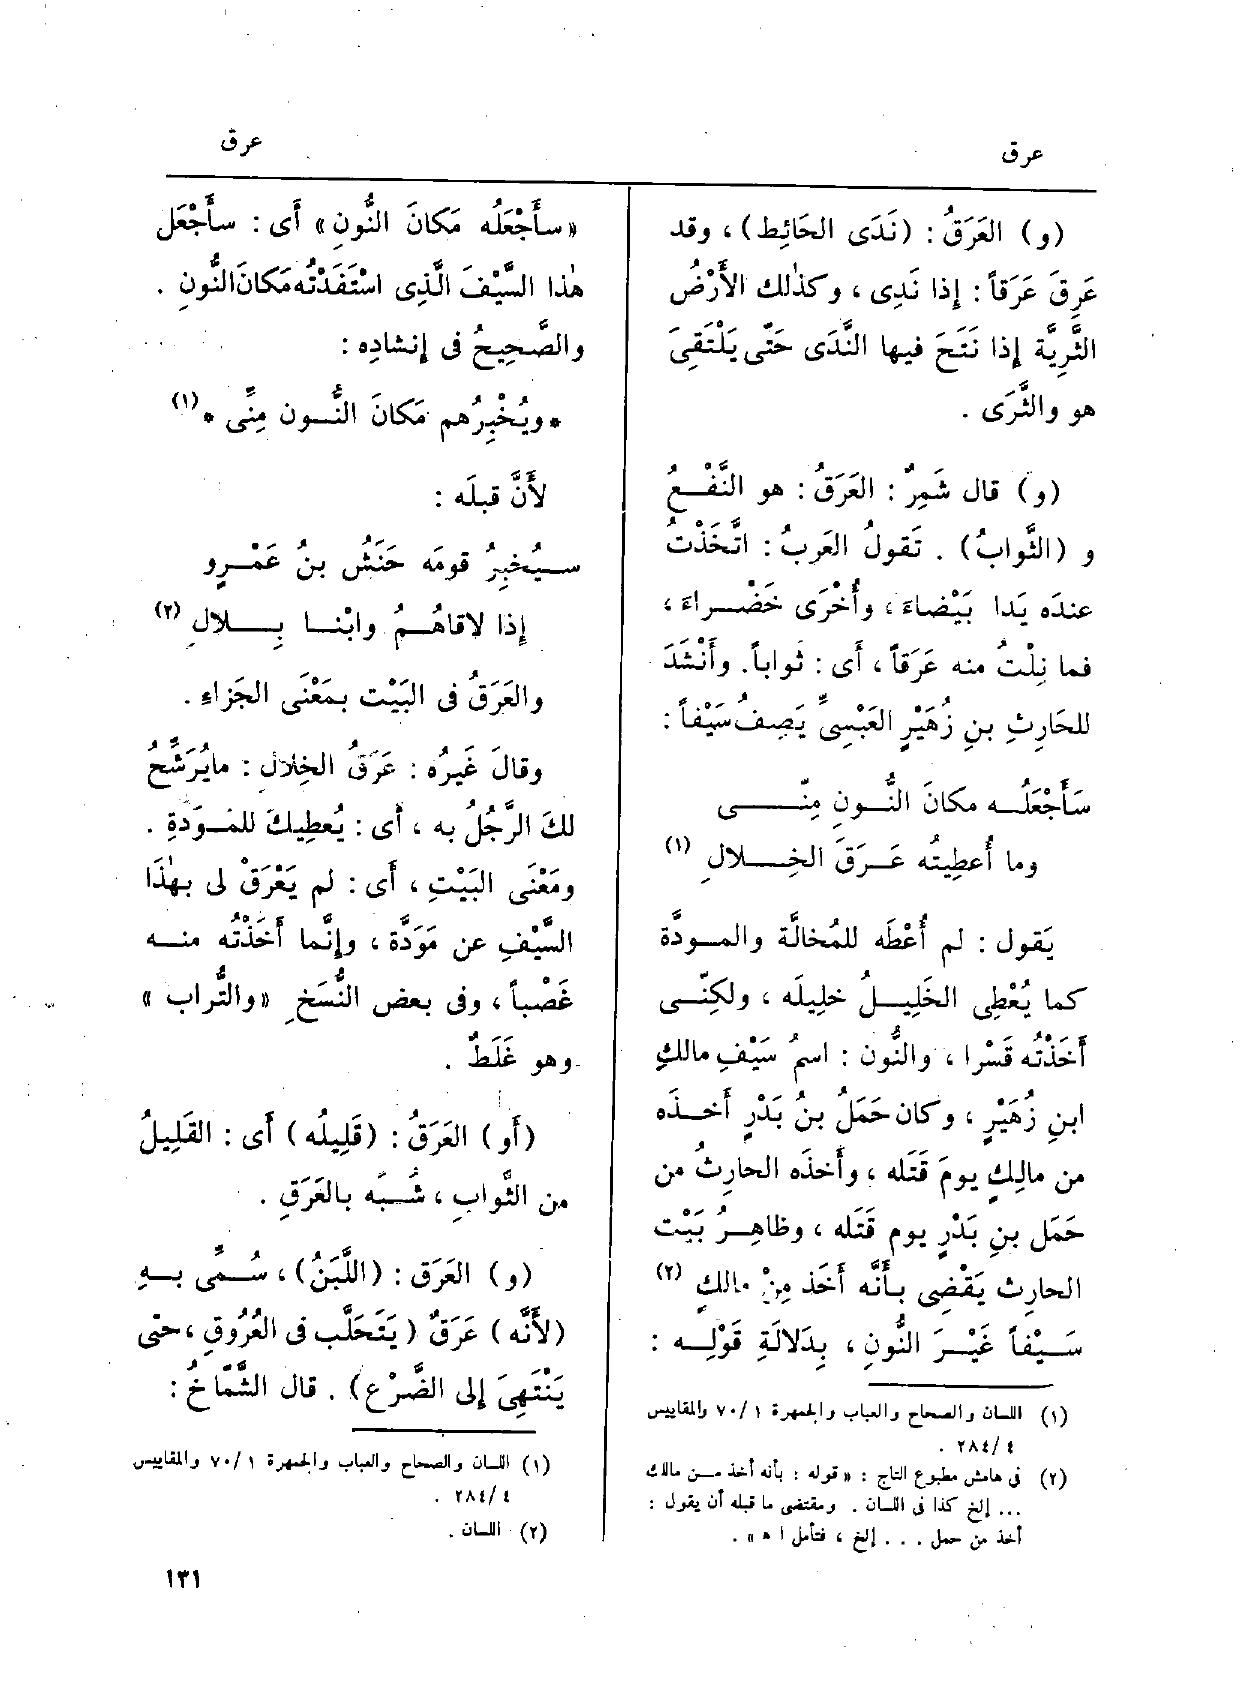 عرق
عرق
(و) العَرَقُ : (نَدَى الحَائِط) ، وقد
عَرِقَ عَرَقاً : إذا نَدِى ، وكذٰلك الأَرْضُ
الثَّرِيَّة إذا نَتَحَ فيها النَّدَى حَتّى يَلْتَقِىَ
هو والثَّرَى .
(و) قال شَمِرٌ : العَرَقُ : هو النَّفْعُ
و (الثَّوابُ) . تَقولُ العَربُ : اتَّخَذْتُ
عندَه يَدا بَيْضاءَ ، وأُخْرَى خَضْراءَ ،
فما نِلْتُ منه عَرَقاً ، أى : ثواباً. وأَنْشَدَ
للحَارِثِ بنِ زُهَيْرٍ العَبْسِىِّ يَصِفُ سَيْفاً :
سَأَجْعَلُه مكانَ النُّونِ مِنّى
وما أُعطِيتُه عَرَقَ الخِلالِ (١)
يَقول : لم أُعْطَه للمُخالَّة والمودَّة
كما يُعْطِى الخَلِيلُ خلِيلَه ، ولكِنّى
أَخَذْتُه قَسْرا ، والنُّون : اسمُ سَيْفِ مالكِ
ابنِ زُهَيْرٍ ، وكان حَمَلُ بنُ بَدْرٍ أخذه
من مالِكٍ يومَ قَتَله ، وأخذه الحارِثُ من
حَمَل بنِ بَدْرٍ يوم قَتَله ، وظاهِرُ بَيْت
الحارِث يَقْضِى بأَنَّه أَخَذ مِنْ مالكٍ (٢)
سَيْفاً غَيْرَ النُّونِ ، بِدَلالَةِ قَوْلِه :
(١) اللسان والصحاح والعباب والجمهرة ١ /٧٠ والمقاييس
٤ /٢٨٤ .
(٢) فى هامش مطبوع التاج : « قوله : بأنه أخذ من مالك
... إلخ كذا فى اللسان . ومقتضى ما قبله أن يقول :
أخذ من حمل . . . إلخ ، فتأمل ا ه » .
«سأَجْعَلُه مَكانَ النُّونِ» أَى : سأَجْعَل
هٰذا السَّيْفَ الَّذِى اسْتَفَدْتُه مَكانَ النُّونِ .
والصَّحِيحُ فى إنشادِه :
* ويُخْبِرُهم مَكانَ النُّون مِنِّى * (١)
لأَنَّ قبلَه :
سيُخبِرُ قومَه حَنَشُ بنُ عَمْرٍو
إذا لاقاهُمُ وابْنا بِلالِ (٢)
والعَرَقُ فى البَيْت بمَعْنَى الجَزاءِ .
وقالَ غَيرُه : عَرَقُ الخِلالِ : ما يُرَشِّحُ
لكَ الرَّجُلُ به ، أَى : يُعطِيكَ للمَودَةِ .
ومَعْنَى البَيْتِ ، أَى : لم يَعْرَقْ لى بهٰذَا
السَّيْفِ عن مَوَدَّة ، وإنَّما أَخَذْتُه منه
غَصْباً ، وفى بعض النُّسَخِ «والتُّراب»
وهو غَلَطٌ .
(أَو) العَرَقُ : (قَلِيلُه) أَى : القَلِيلُ
من الثَّوابِ ، شُبِّه بالعَرَقِ .
(و) العَرَق : (اللَّبَنُ) ، سُمِّى بهِ
(لأَنَّه) عَرَقٌ (يَتَحَلَّب فى العُرُوقِ ، حتى
يَنْتَهِىَ إلى الضَّرْع) . قال الشَّمّاخُ :
(١) اللسان والصحاح والعباب والجمهرة ١ /٧٠ والمقاييس
٤ /٢٨٤ .
(٢) اللسان .
١٣١